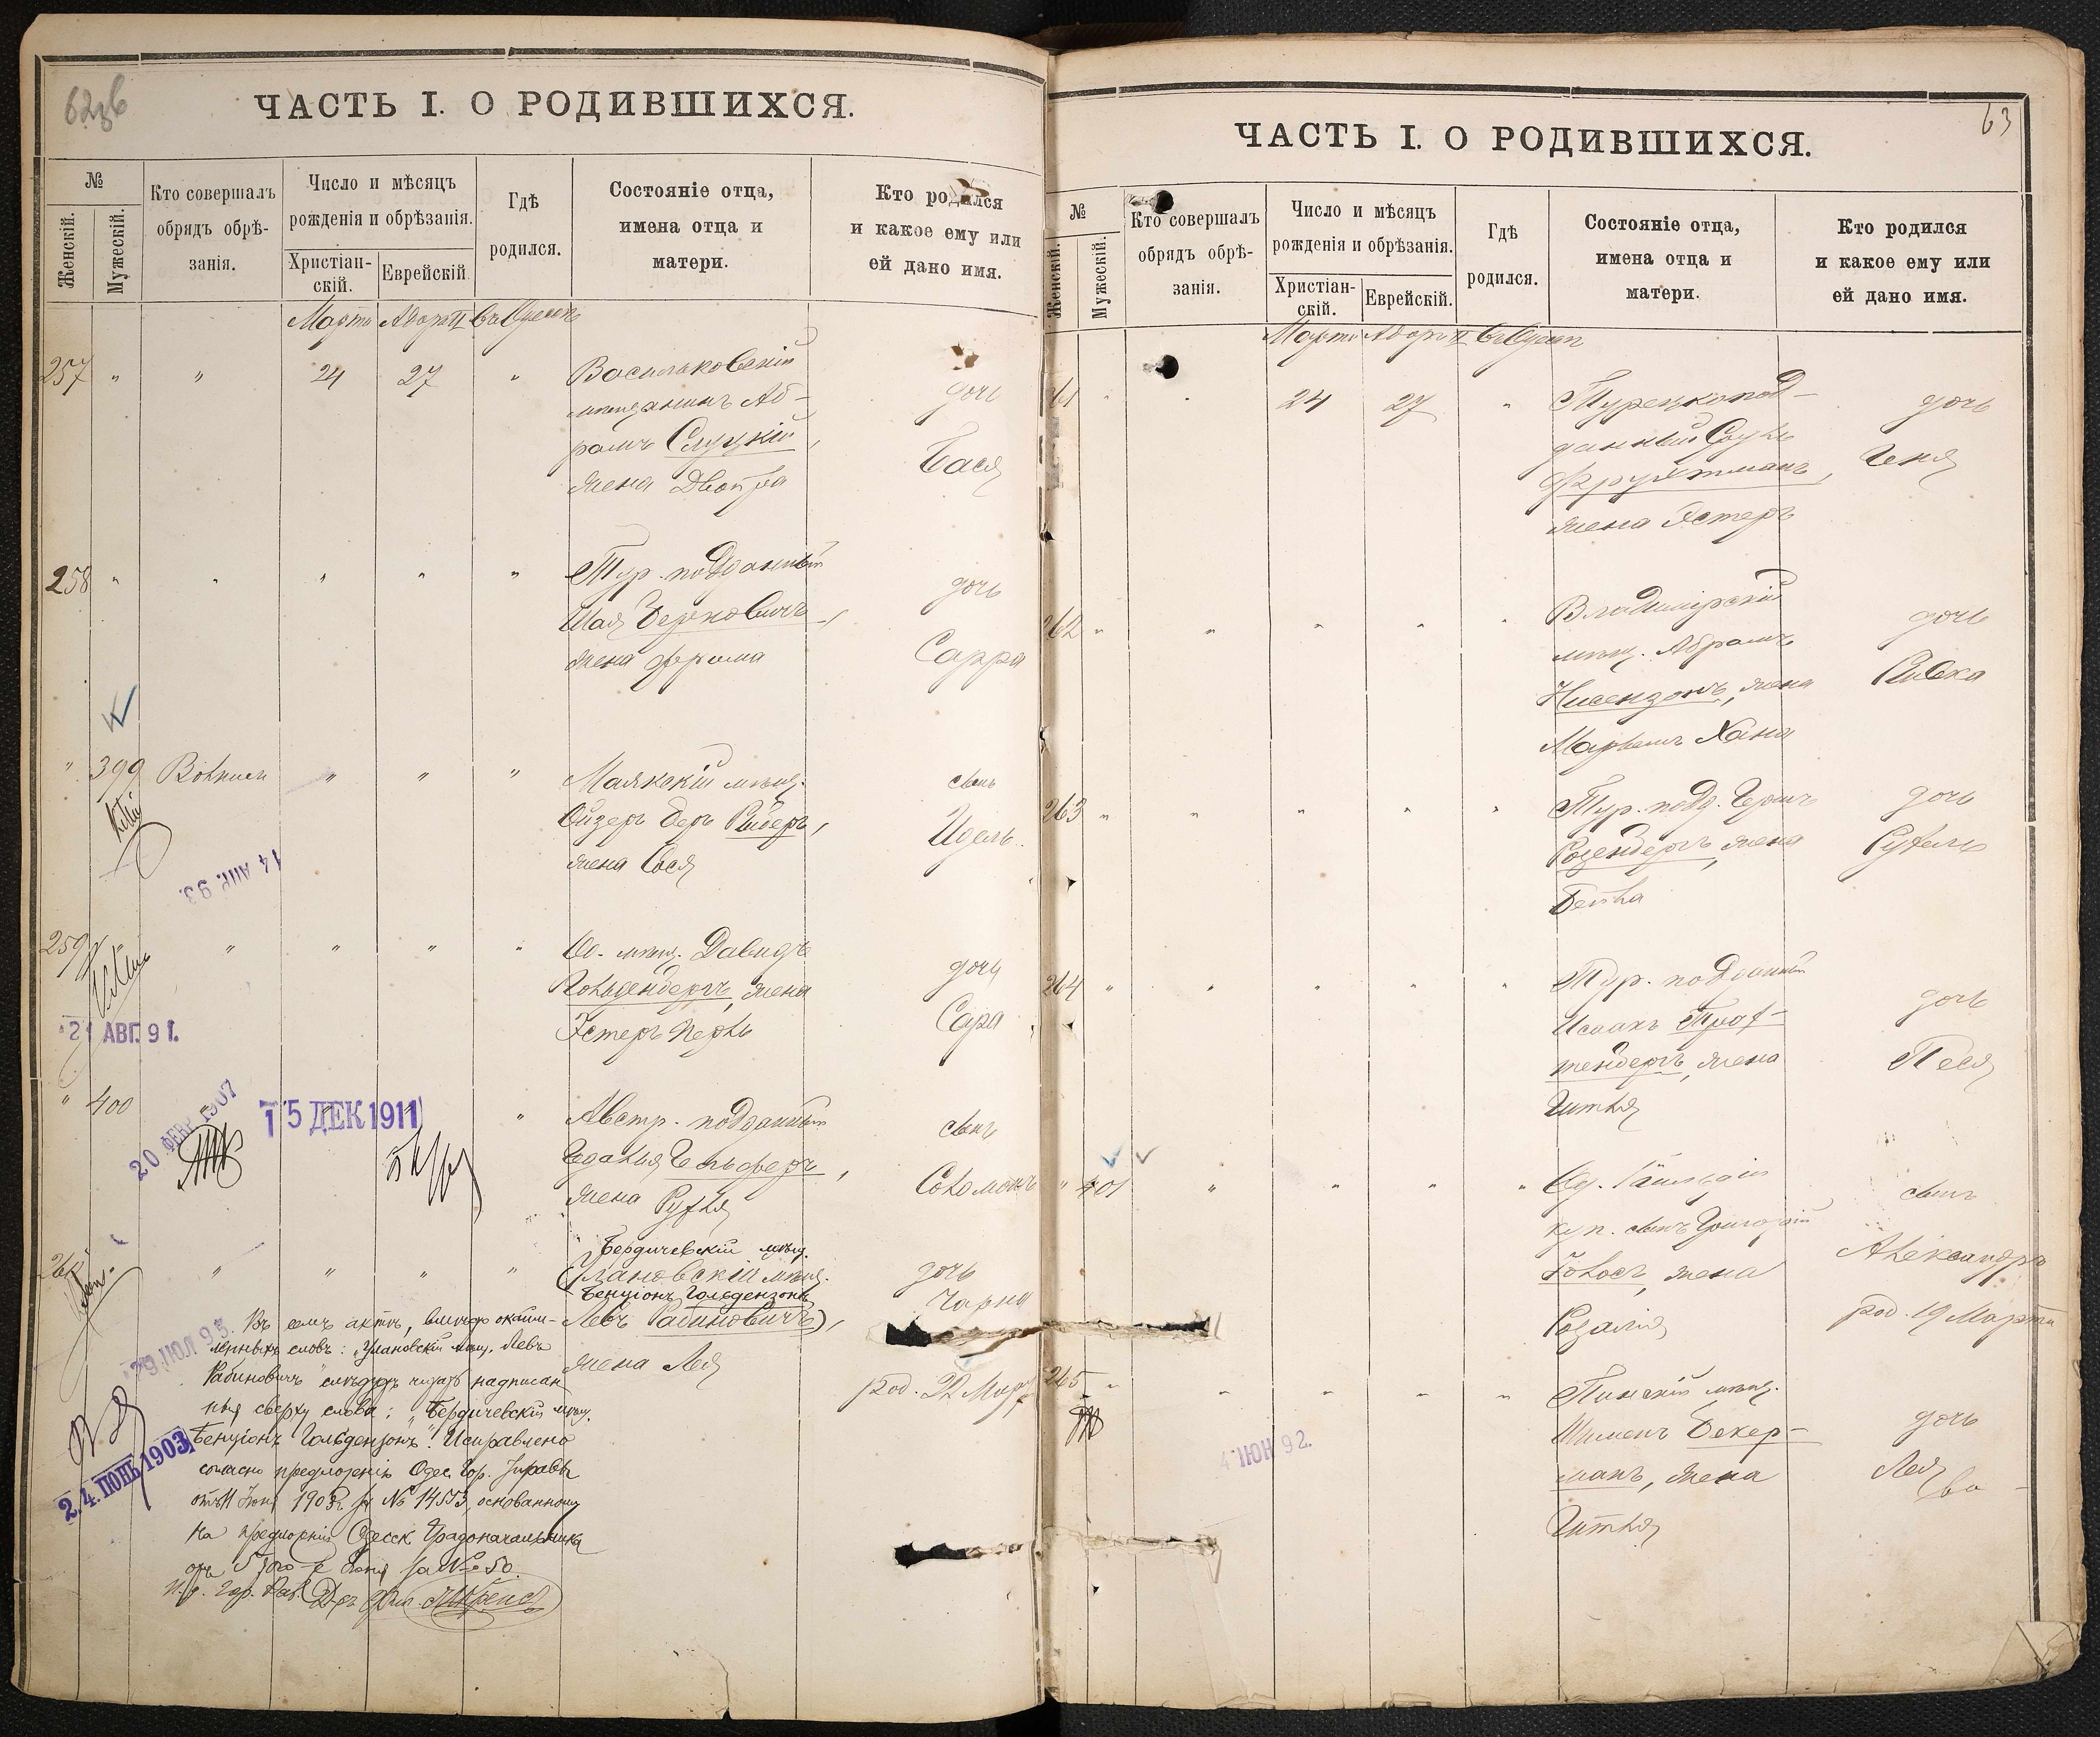 ЧАСТЬ I. О РОДИВШИХСЯ.
№
Женскій.
Мужескій.
Кто совершалъ обрядъ обрѣ-
занія.
Число и мѣсяцъ
рожденія и обрѣзанія.
Христіан-
скій.
Еврейскій.
Гдѣ
родился.
Состояніе отца,
имена отца и
матери.
Кто родился
и какое ему или
ей дано имя.
Марта Адара II въ Одессѣ
257 " " 24 27 "
Васильковскій
мѣщанинъ Аб-
рамъ Слуцкій,
жена Двойра
дочь
Бася
258 " " " " "
Тур. подданный
Шая Берковичъ,
жена Фрума
дочь
Сарра
" 399 " " "
Маякскій мѣщ.
Ойзеръ Беръ
жена Сося
сынъ
Идель
14 АПР. 93.
259 " " " "
Од. мѣщ. Давидъ
Гольденбергъ, жена
Эстеръ Перль
дочь
Сара
21 АВГ. 91.
" 400 "
20 ФЕВР 1907
15 ДЕК 1911
Австр. подданный
Гельферъ,
жена Рухля
сынъ
Соломонъ
260 " " " "
Бердичевскій мѣщ.
(Улановскій мѣщ.
Бенціонъ Гольдензонъ
Левъ Рабиновичъ),
жена Лея
дочь
Чарна
род. 22 Мар
29 ІЮЛ 93.
Въ семъ актѣ, вмѣсто окайм-
ленныхъ словъ: „Улановскій мѣщ. Левъ
Рабиновичъ" слѣдуетъ читать надписан-
ныя сверху слова: „Бердичевскій мѣщ.
Бенціонъ Гольдензонъ". Исправлено
согласно предложенію Одес. Гор. Управы
отъ 11 Іюня 1903 г. за № 14553, основанному
на предложеніи Одесск. Градоначальника
отъ 5 того-же Іюня за №
24 ІЮНЬ 1903
63
ЧАСТЬ I. О РОДИВШИХСЯ.
№
Женскій.
Мужескій.
Кто совершалъ
обрядъ обрѣ-
занія.
Число и мѣсяцъ
рожденія и обрѣзанія.
Христіан-
скій.
Еврейскій.
Гдѣ
родился.
Состояніе отца,
имена отца и
матери.
Кто родился
и какое ему или
ей дано имя.
Марта Адара II въ Одессѣ
61 " " 24 27 "
Турецкопод-
данный Сруль
Фрухтманъ,
жена Эстеръ
дочь
Геня
262 " " " " "
Владимірскій
мѣщ. Абрамъ
Нисензонъ, жена
Марьямъ Хана
дочь
Ривка
263 " " " " "
Тур. подд. Гершъ
Розенбергъ, жена
Бейла
дочь
Рухель
264 " " " " "
Тур. подданный
Исаакъ Трах-
тенбергъ, жена
Гитля
дочь
Песя
" 401 " " " "
куп. сынъ Григорій
жена
Розалія
сынъ
Александръ
род. 19 Марта
265 " " " " "
Пинскій мѣщ.
Шименъ Бекер-
манъ, жена
Гитля
дочь
Лея
4 ІЮН 92.